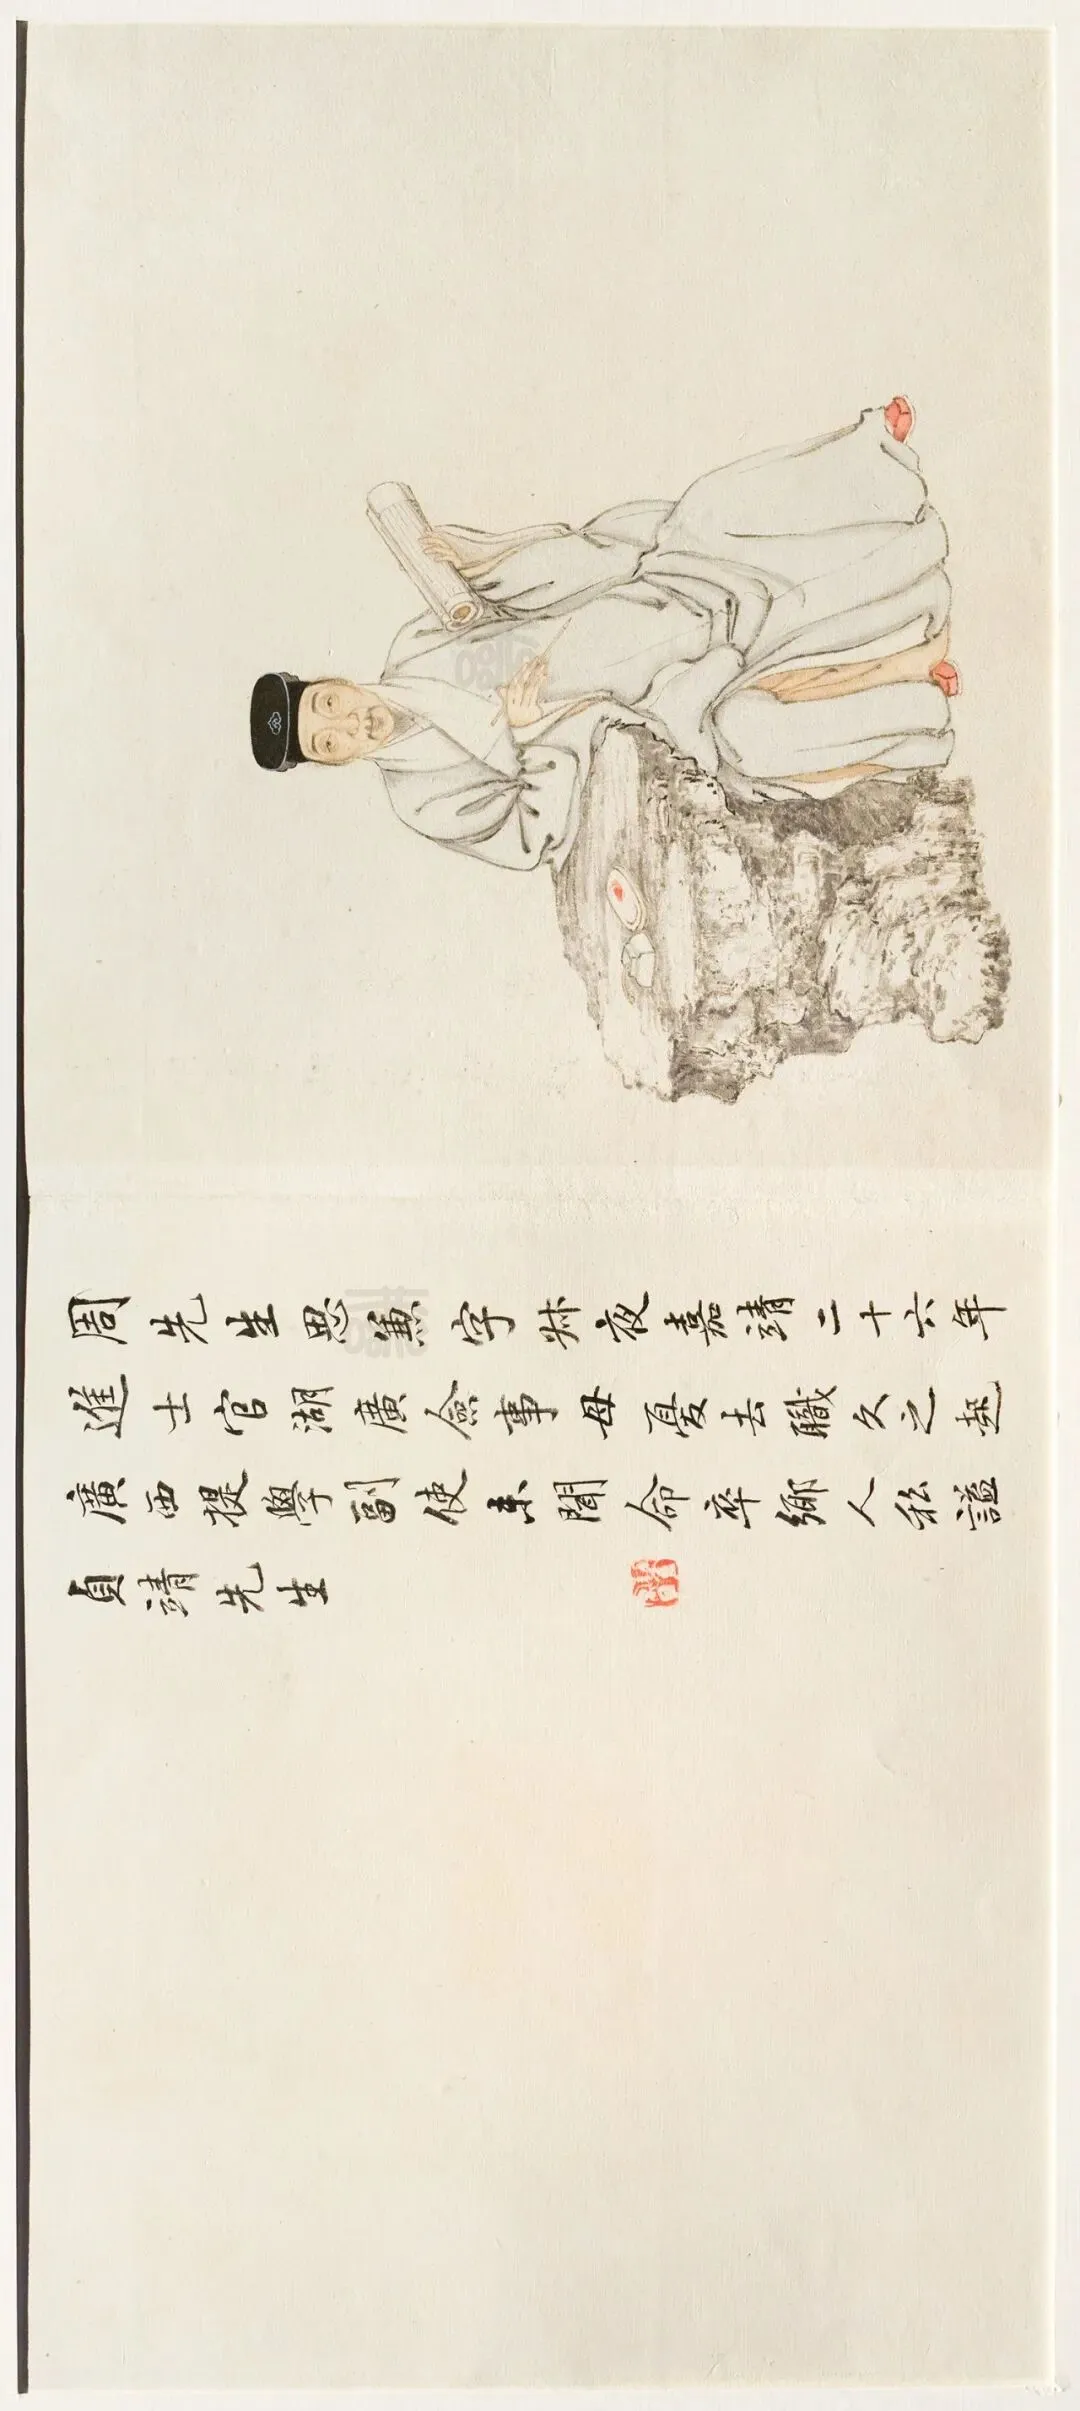 周先生思兼字叔夜嘉靖二十六年
進士官湖廣僉事母憂去職久之起
廣西提學副使未聞命卒鄉人私謚
貞靖先生